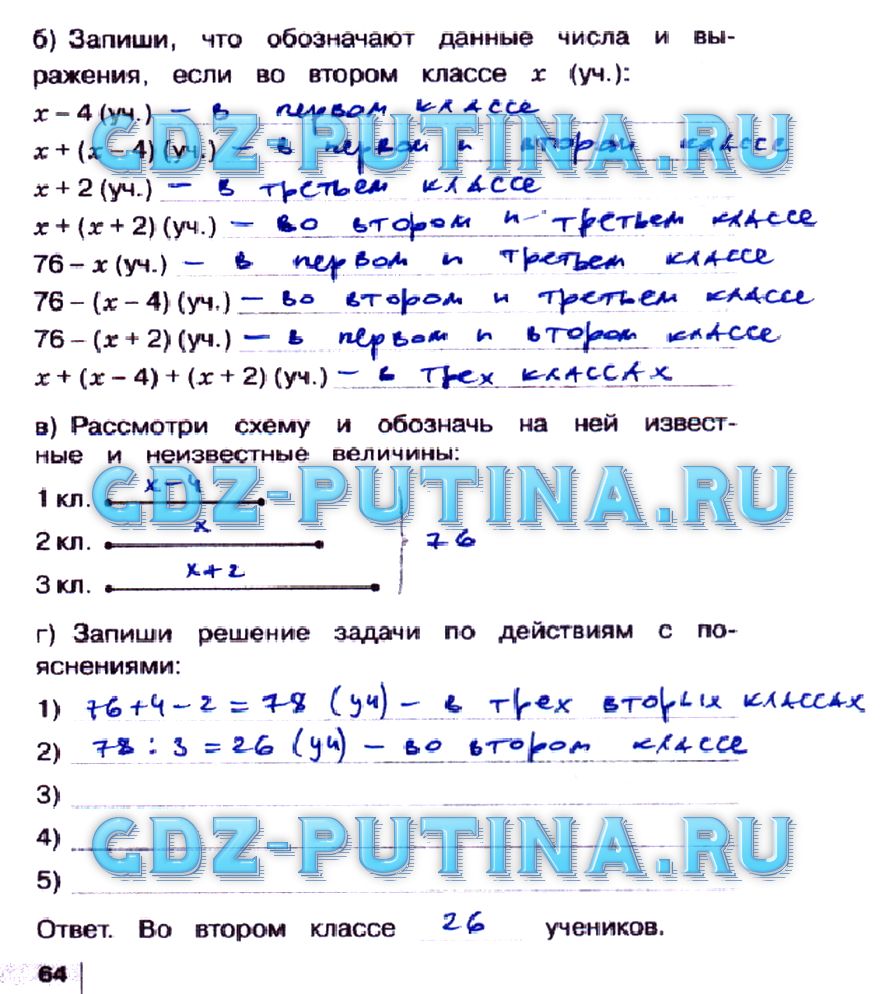 б) Запиши, что обозначают данные числа и вы-
ражения, если во втором классе x (уч.):
x – 4 (уч.) – в первом классе
x + (x – 4) (уч.) – в первом и втором классе
x + 2 (уч.) – в третьем классе
x + (x + 2) (уч.) – во втором и третьем классе
76 – x (уч.) – в первом и третьем классе
76 – (x – 4) (уч.) – во втором и третьем классе
76 – (x + 2) (уч.) – в первом и втором классе
x + (x – 4) + (x + 2) (уч.) – в трех классах
в) Рассмотри схему и обозначь на ней извест-
ные и неизвестные величины:
1 кл. x – 4
2 кл. x 76
3 кл. x + 2
г) Запиши решение задачи по действиям с по-
яснениями:
1) 76 + 4 – 2 = 78 (уч) – в трех вторых классах
2) 78 : 3 = 26 (уч) – во втором классе
3)
4)
5)
Ответ. Во втором классе 26 учеников.
64
GDZ-PUTINA.RU
GDZ-PUTINA.RU
GDZ-PUTINA.RU